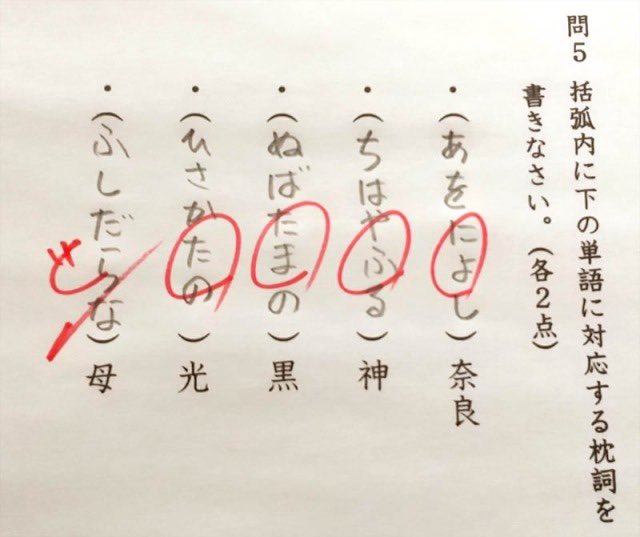 問5 括弧内に下の単語に対応する枕詞を
書きなさい。(各2点)
・(あをによし)奈良
・(ちはやふる)神
・(ぬばたまの)黒
・(ひさかたの)光
・(ふしだらな)母